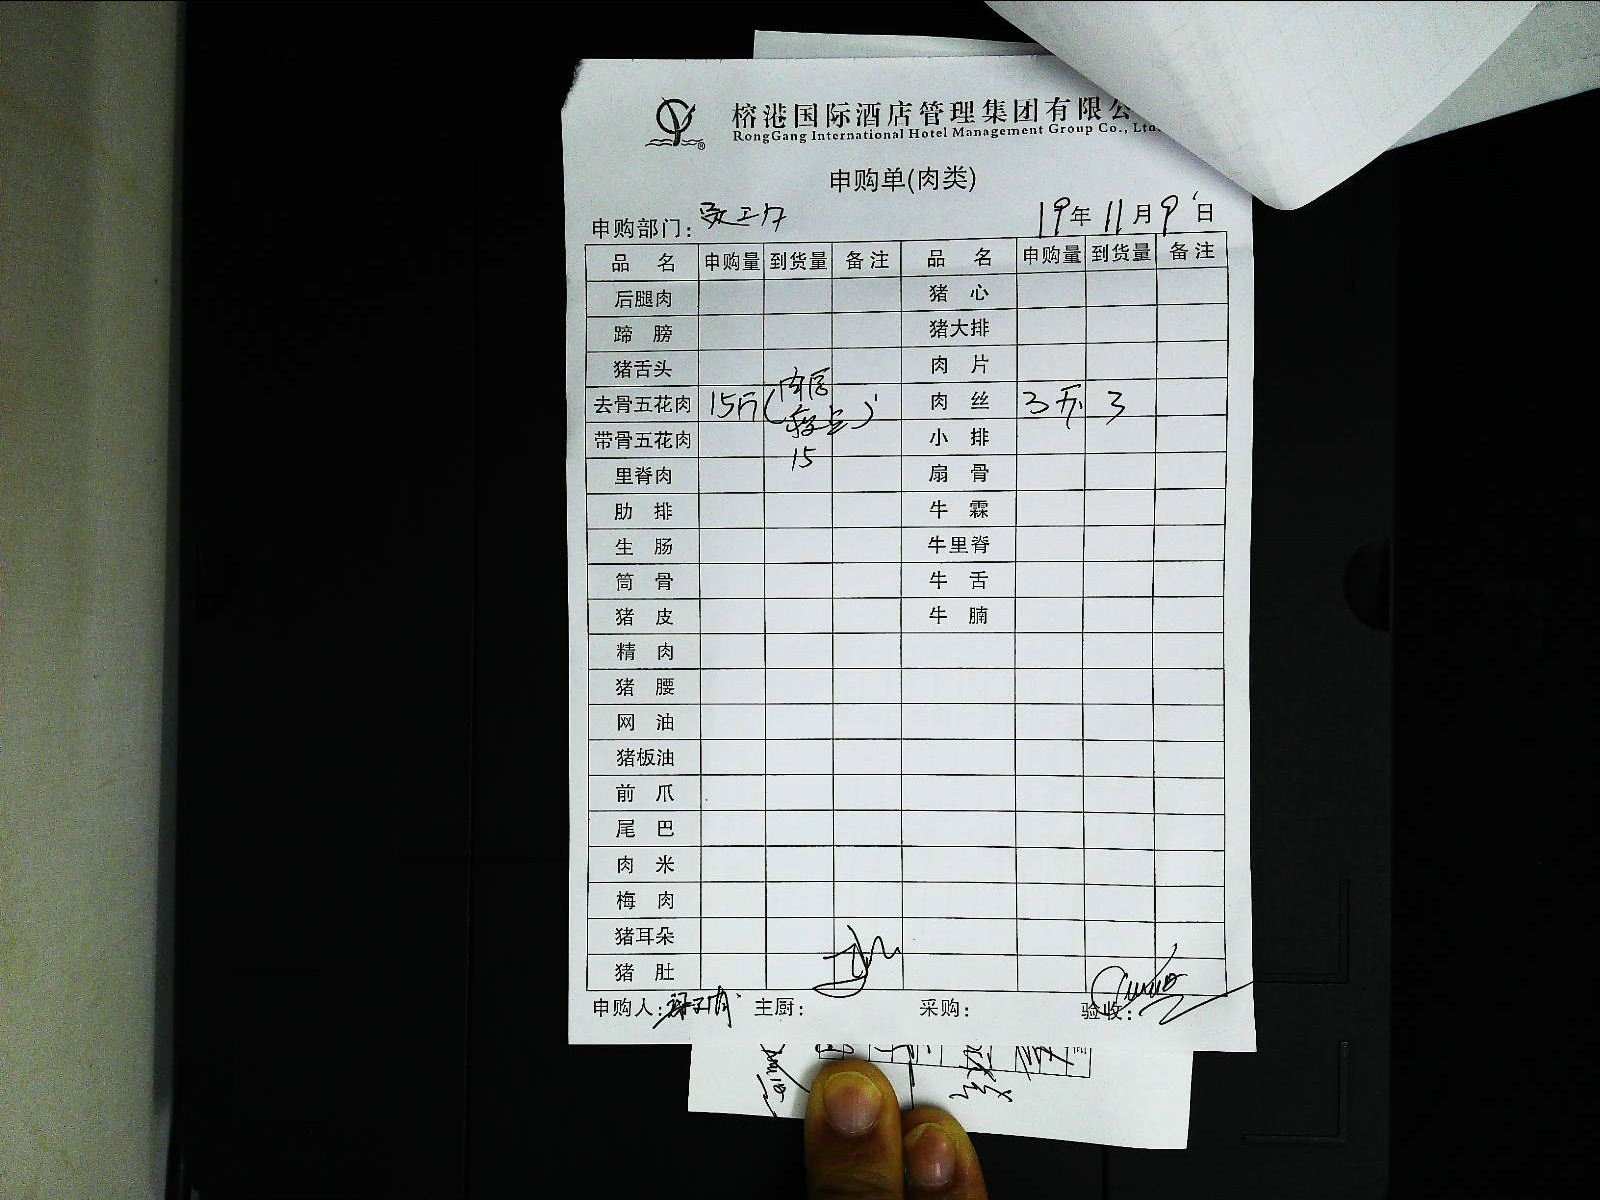 榕港国际酒店管理集团有限公
RongGang International Hotel Management Group Co., Ltd.
申购单(肉类)
申购部门: 19年 11月 9日
品名 申购量 到货量 备注 品名 申购量 到货量 备注
后腿肉 猪心
蹄膀 猪大排
猪舌头 肉片
去骨五花肉 15斤 (肉厚 肉丝 3斤 3
带骨五花肉 小排
15
里脊肉 扇骨
肋排 牛霖
生肠 牛里脊
筒骨 牛舌
猪皮 牛腩
精肉
猪腰
网油
猪板油
前爪
尾巴
肉米
梅肉
猪耳朵
猪肚
申购人: 主厨: 采购: 验收: